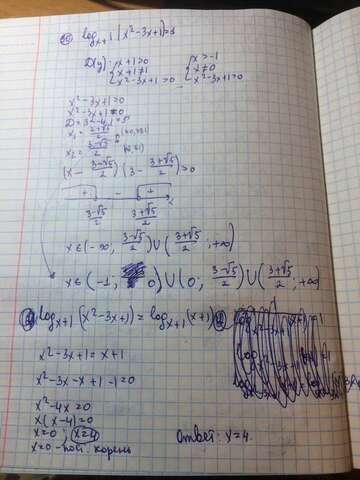 log_{x+1} (x²-3x+1)=1
D(y): { x+1>0 { x>-1
x+1≠1 x≠0
x²-3x+1>0 x²-3x+1>0
x²-3x+1>0
x²-3x+1=0
x₁ = (3+√5)/2
x₂ = (3-√5)/2
(x - (3-√5)/2) (3 - (3+√5)/2) >0
+ - +
(3-√5)/2 (3+√5)/2 x
x∈(-∞; (3-√5)/2) ∪ ((3+√5)/2; +∞)
x∈(-1; 0) ∪ (0; (3-√5)/2) ∪ ((3+√5)/2; +∞)
log_{x+1} (x²-3x+1) = log_{x+1} (x+1)
x²-3x+1 = x+1
x²-3x-x+1-1=0
x²-4x=0
x(x-4)=0
x=0; x=4
x=0 - пост. корень
Ответ: x=4.